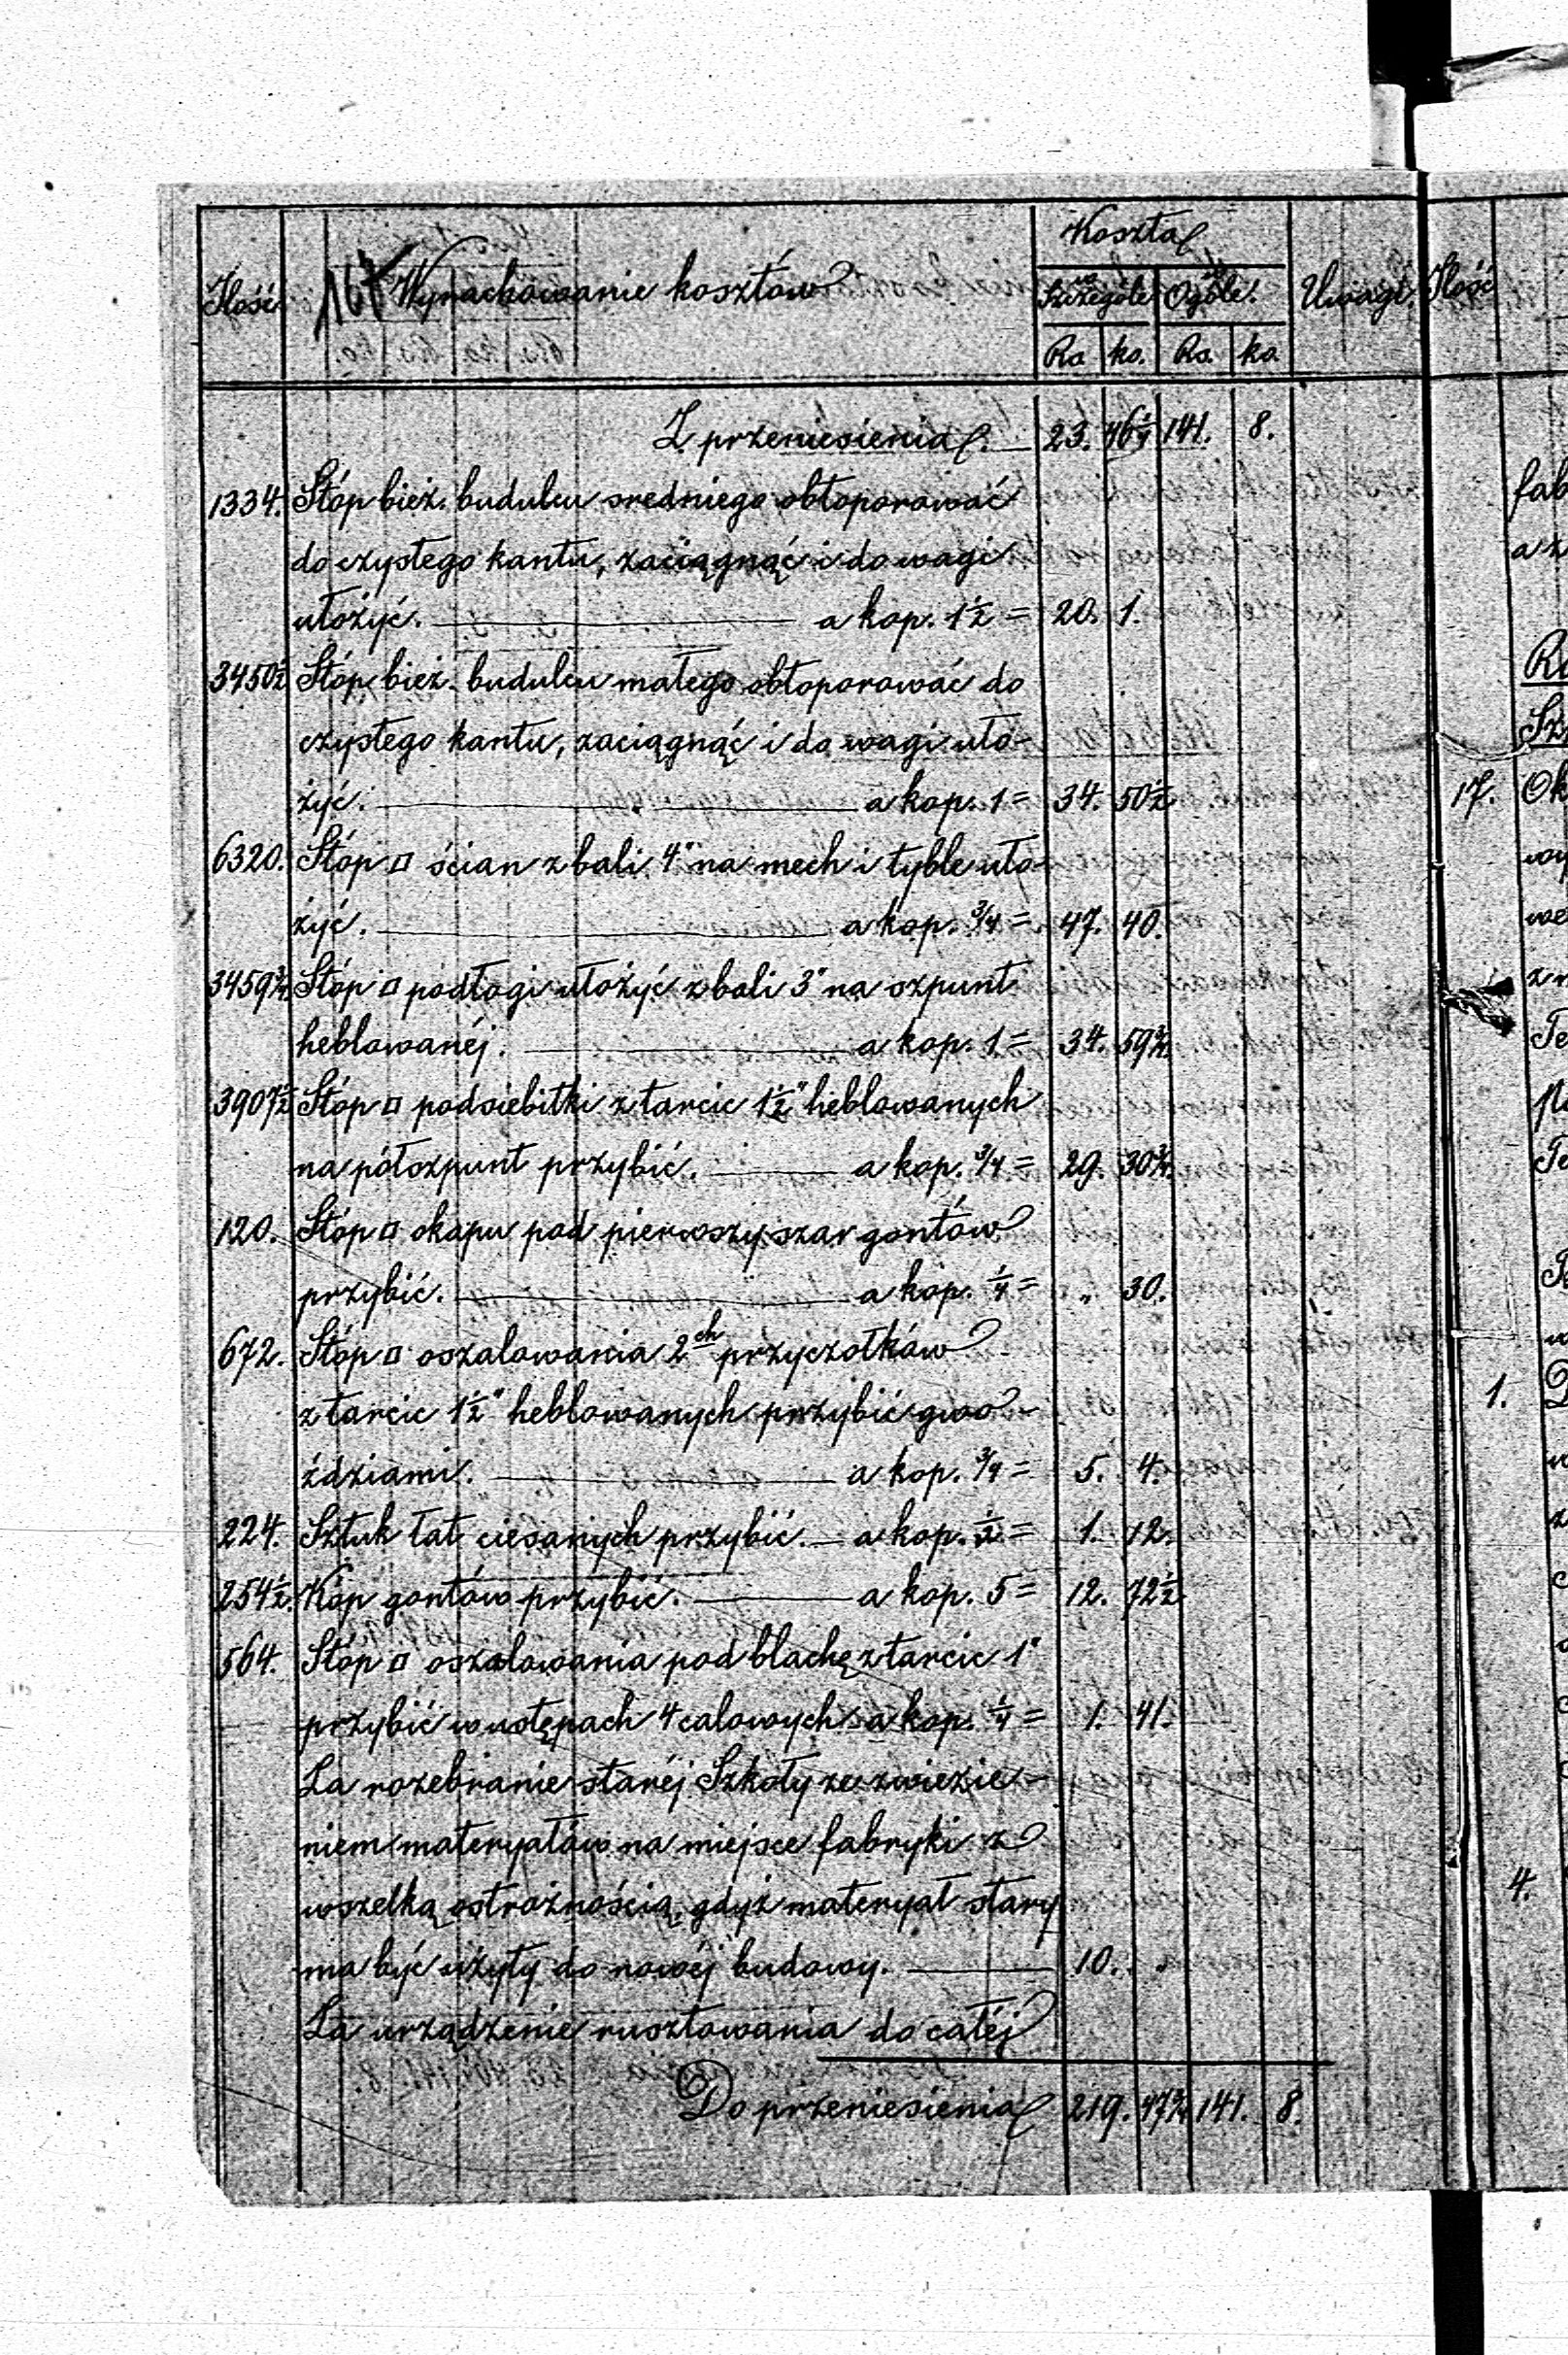 Koszta
Ilość. 107 Wyrachowanie kosztów w Szczególe w Ogóle. Uwagi. Ilość
Rs. ko. Rs. ko.
Z przeniesienia. 23. 46 1/4 141. 8.
1334. Stóp bież. budulcu sredniego obtoporować
do czystego kantu, zaciągnąć i do wagi
ułożyć. — a kop. 1 1/2 = 20. 1.
3450 1/2 Stóp bież. budulcu małego obtoporować do
czystego kantu, zaciągnąć i do wagi uło-
żyć. — a kop. 1 = 34. 50 1/2
6320. Stóp □ ścian z bali 4" na mech i tyble uło-
żyć. — a kop. 3/4 = 47. 40.
3459 3/4 Stóp □ podłogi ułożyć z bali 3" na szpunt
heblowanéj. — a kop. 1 = 34. 59 3/4
3907 1/2 Stóp □ podsiebitki z tarcic 1 1/2" heblowanych
na półszpunt przybić. — a kop. 3/4 = 29. 30 3/4
120. Stóp □ okapu pod pierwszy szar gontów
przybić. — a kop. 1/4 = „ 30.
672. Stóp □ oszalowania 2ch przyczółków
z tarcic 1 1/2" heblowanych przybić gwo-
ździami. — a kop. 3/4 = 5. 4.
224. Sztuk łat ciesanych przybić. — a kop. 1/2 = 1. 12.
254 1/2 Kóp gontów przybić. — a kop. 5 = 12. 72 1/2
564. Stóp □ oszalowania pod blachę z tarcic 1"
przybić w ustępach 4 calowych a kop. 1/4 = 1. 41.
Za rozebranie staréj Szkoły ze zwiezie-
niem materyałów na miejsce fabryki z
wszelką ostrożnością, gdyż materyał stary
ma być użyty do nowéj budowy. — 10. „
Za urządzenie rusztowania do całéj
Do przeniesienia 219. 47 3/4 141. 8.
17.
1.
4.